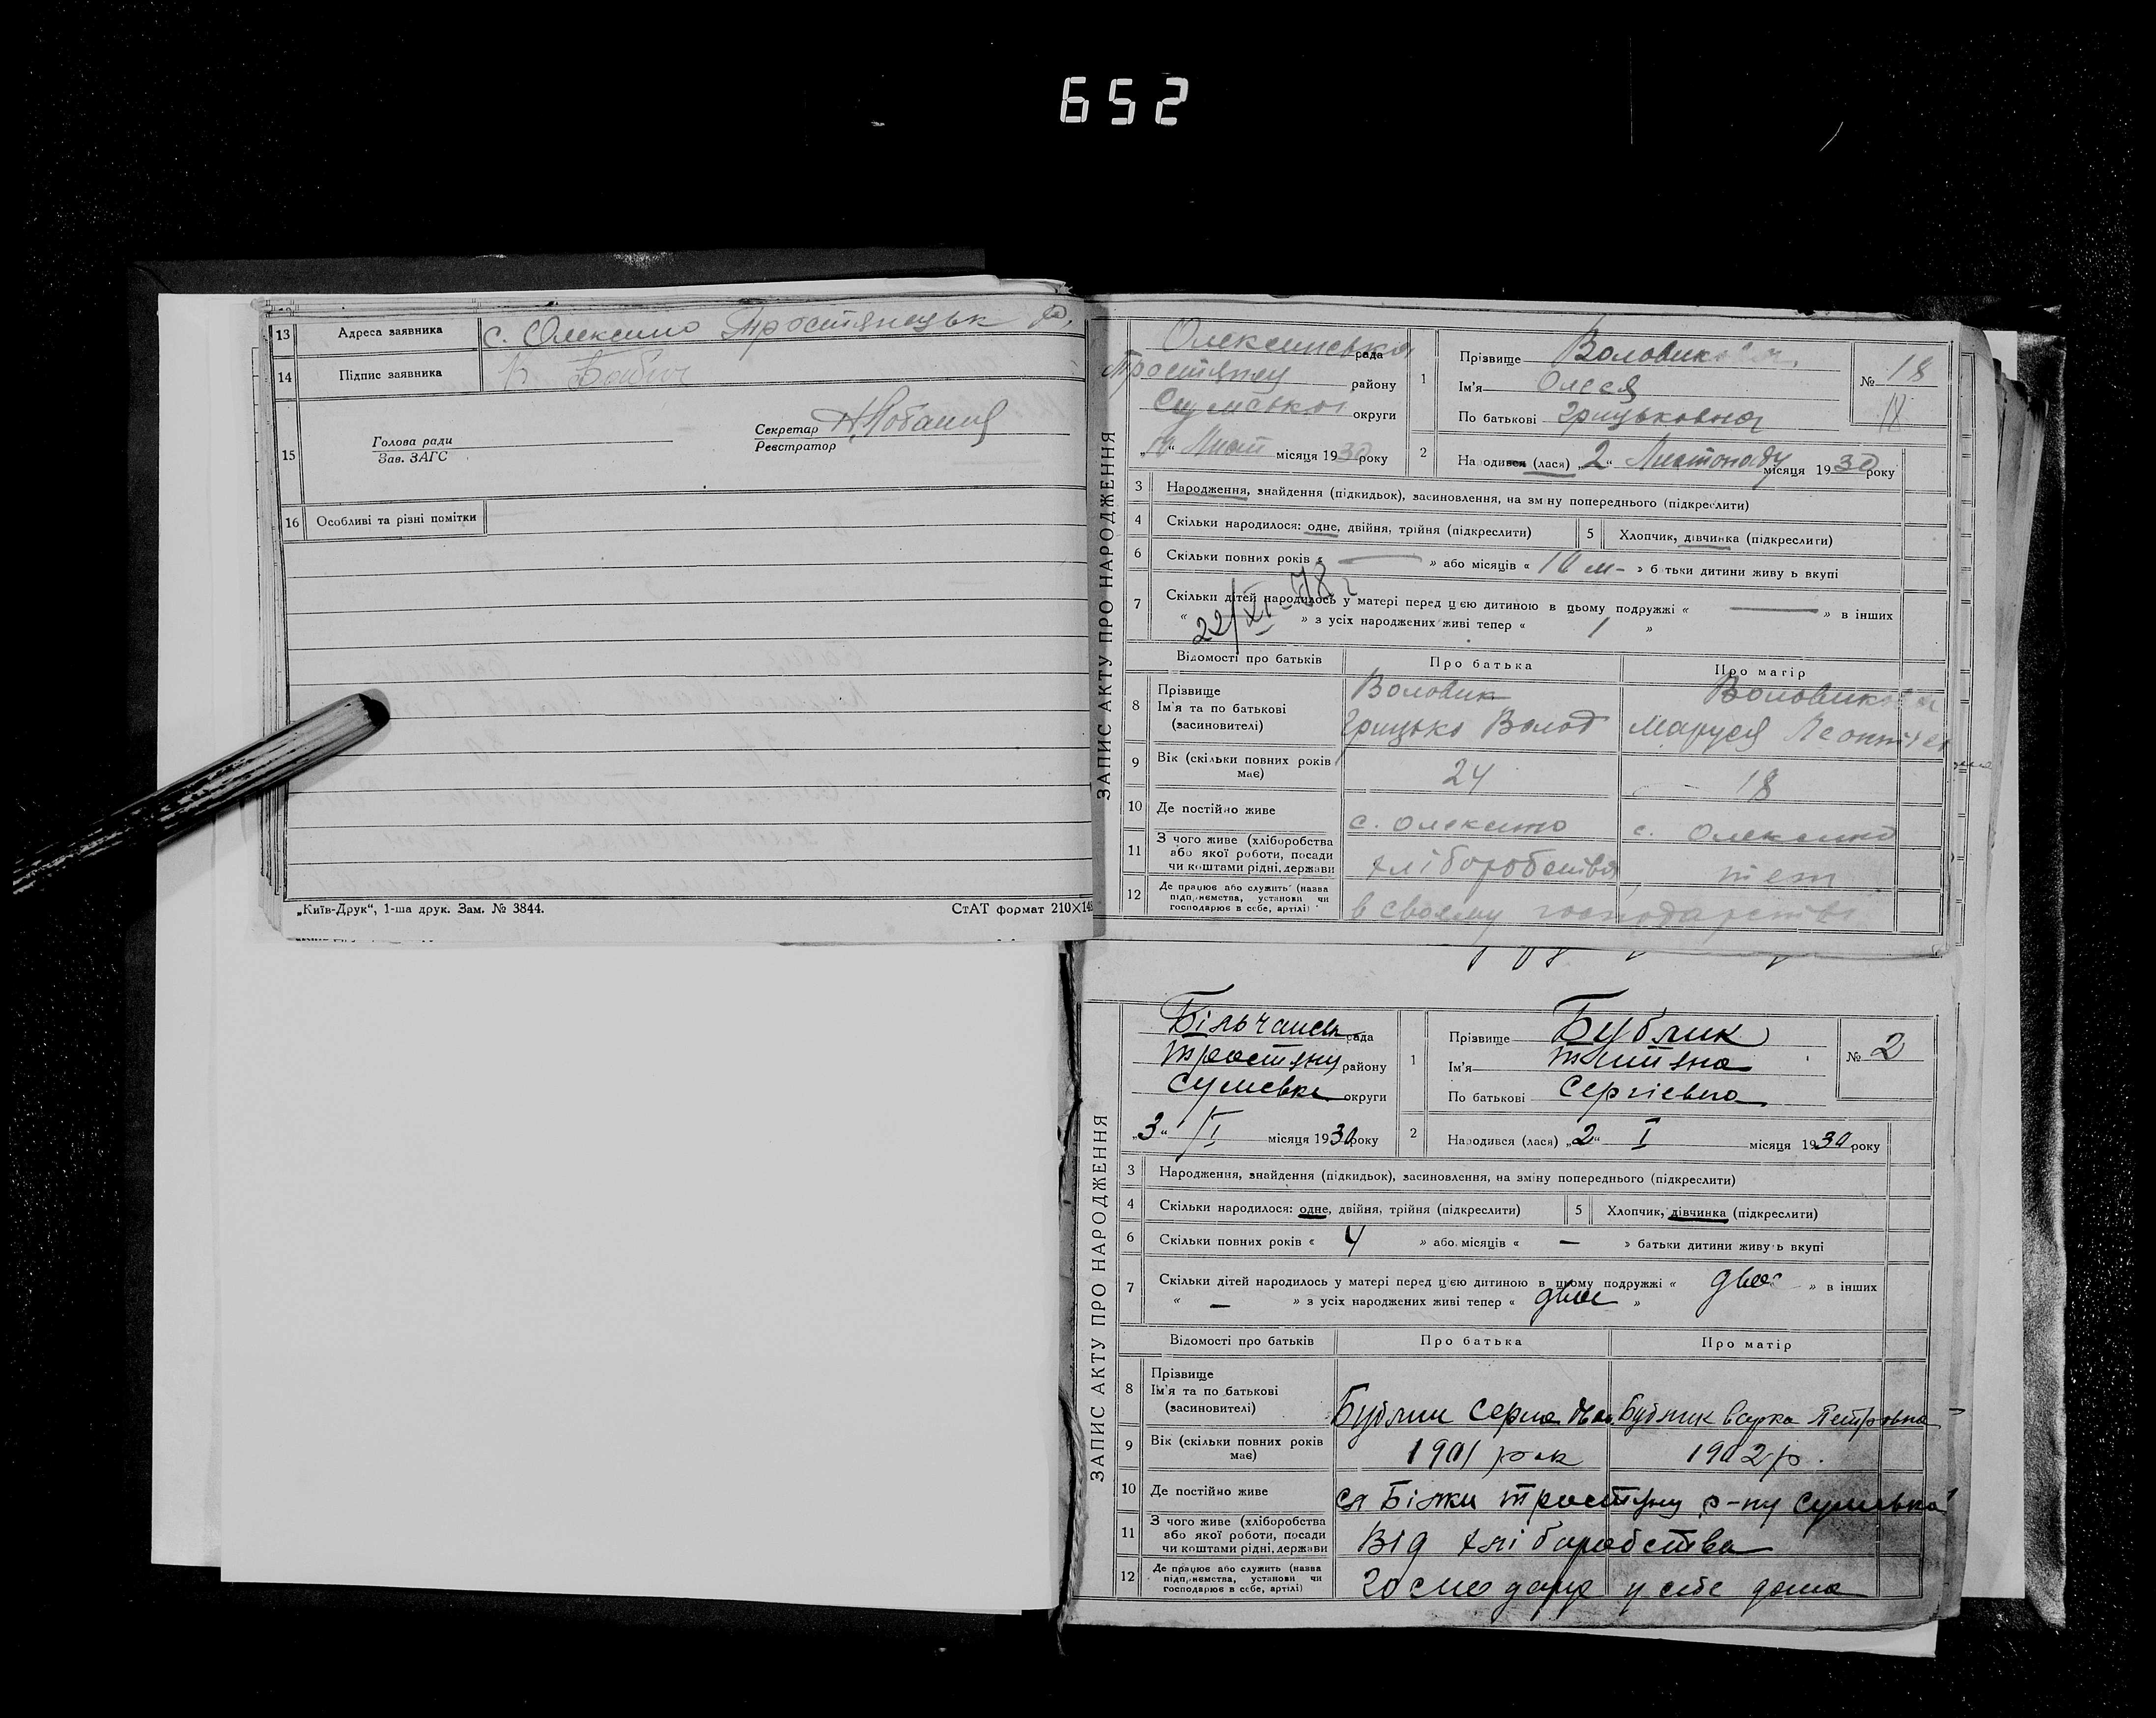 652
13 Адреса заявника с. Олексино Тростянецьк р.
14 Підпис заявника Бабич
15 Голова ради
Зав. ЗАГС
Секретар
Реєстратор
16 Особливі та різні помітки
„Київ-Друк“, 1-ша друк. Зам. № 3844.
СтАТ формат 210×148
ЗАПИС АКТУ ПРО НАРОДЖЕННЯ
Олексинська рада
Тростянец району
Сумської округи
Лист місяця 1930 року
1 Прізвище Воловик
Ім'я Олеся
По батькові Грицьковна
№ 18
18
2 Народився (лася) „2“ Листопаду місяця 1930 року
3 Народження, знайдення (підкидьок), засиновлення, на зміну попереднього (підкреслити)
4 Скільки народилося: одне, двійня, трійня (підкреслити)
5 Хлопчик, дівчинка (підкреслити)
6 Скільки повних років « — » або місяців « 10 м- » батьки дитини живуть вкупі
7 Скільки дітей народилось у матері перед цією дитиною в цьому подружжі « — » в інших
« » з усіх народжених живі тепер « 1 »
22/XI-78 г
Відомості про батьків Про батька Про матір
8 Прізвище
Ім'я та по батькові
(засиновителі)
Воловик
Грицько Волод
Воловик
Маруся
9 Вік (скільки повних років
має)
24 18
10 Де постійно живе с. Олексино с. Олексино
11 З чого живе (хліборобства
або якої роботи, посади
чи коштами рідні, держави
хліборобства теж
12 Де працює або служить (назва
підприємства, установи чи
господарює в себе, артілі)
в своєму господарстві
ЗАПИС АКТУ ПРО НАРОДЖЕННЯ
Більчанськ рада
Тростянц району
Сумськ округи
„3“ I місяця 1930 року
1 Прізвище Бублик
Ім'я Титяна
По батькові Сергієвна
№ 2
2 Народився (лася) „2“ I місяця 1930 року
3 Народження, знайдення (підкидьок), засиновлення, на зміну попереднього (підкреслити)
4 Скільки народилося: одне, двійня, трійня (підкреслити)
5 Хлопчик, дівчинка (підкреслити)
6 Скільки повних років « 4 » або місяців « — » батьки дитини живуть вкупі
7 Скільки дітей народилось у матері перед цією дитиною в цьому подружжі « двоє » в інших
« — » з усіх народжених живі тепер « двоє »
Відомості про батьків Про батька Про матір
8 Прізвище
Ім'я та по батькові
(засиновителі)
Бублик Сергій Бублик Варка Петровна
9 Вік (скільки повних років
має)
1901 рок 1902 р.
10 Де постійно живе
с. Білки Тростянц р-ну Сумська
11 З чого живе (хліборобства
або якої роботи, посади
чи коштами рідні, держави
від хліборобства
12 Де працює або служить (назва
підприємства, установи чи
господарює в себе, артілі)
госпо дарр у себе дома